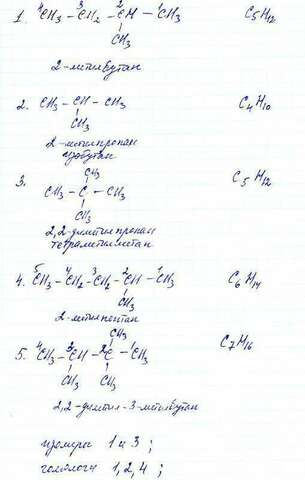 1. ⁴CH₃ — ³CH₂ — ²CH — ¹CH₃ C₅H₁₂
CH₃
2-метилбутан
2. CH₃ — CH — CH₃ C₄H₁₀
CH₃
2-метилпропан
изобутан
CH₃
3. CH₃ — C — CH₃ C₅H₁₂
CH₃
2,2-диметилпропан
тетраметилметан
4. ⁵CH₃ — ⁴CH₂ — ³CH₂ — ²CH — ¹CH₃ C₆H₁₄
CH₃
2-метилпентан
CH₃
5. ⁴CH₃ — ³CH — ²C — ¹CH₃ C₇H₁₆
CH₃ CH₃
2,2-диметил-3-метилбутан
изомеры 1 и 3 ;
гомологи 1, 2, 4 ;